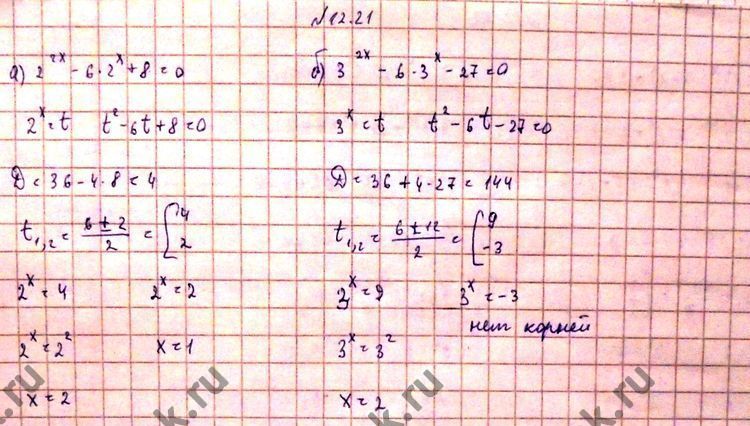 №12.21
а) 2^{2x} - 6·2^x + 8 = 0
2^x = t t² - 6t + 8 = 0
D = 36 - 4·8 = 4
t_{1,2} = (6 ± 2)/2 = [4 2
2^x = 4 2^x = 2
2^x = 2² x = 1
x = 2
б) 3^{2x} - 6·3^x - 27 = 0
3^x = t t² - 6t - 27 = 0
D = 36 + 4·27 = 144
t_{1,2} = (6 ± 12)/2 = [9 -3
3^x = 9 3^x = -3
нет корней
3^x = 3²
x = 2
k.ru
k.ru